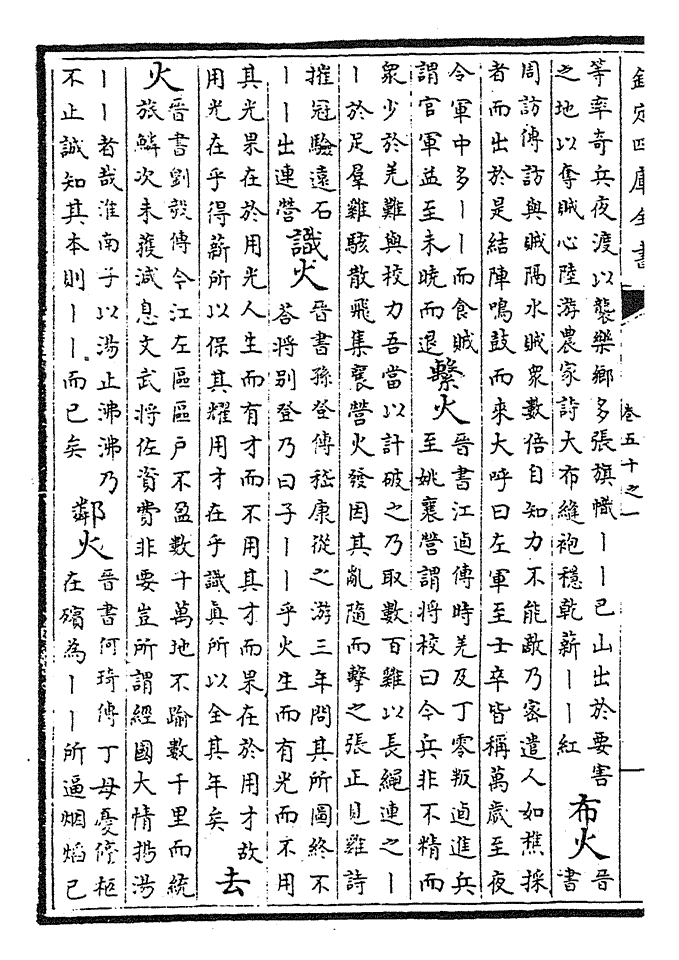 欽定四庫全書 卷五十之一 一
等率奇兵夜渡以襲樂鄉多張旗幟丨丨巳山出於要害
之地以奪賊心陸游農家詩大布縫袍穩乾薪丨丨紅
布火
晉
書
周訪傳訪與賊隔水賊衆數倍自知力不能敵乃密遣人如樵採
者而出於是結陣鳴鼓而來大呼曰左軍至士卒皆稱萬歲至夜
令軍中多丨丨而食賊
謂官軍益至未曉而退
繫火
晉書江逌傳時羌及丁零叛逌進兵
至姚襄營謂將校曰今兵非不精而
衆少於羌難與校力吾當以計破之乃取數百雞以長繩連之丨
丨於足羣雞駭散飛集襄營火發因其亂隨而擊之張正見雞詩
摧冠驗遠石
丨丨出連營
識火
晉書孫登傳嵇康從之游三年問其所圖終不
荅將別登乃曰子丨丨乎火生而有光而不用
其光果在於用光人生而有才而不用其才而果在於用才故
用光在乎得薪所以保其耀用才在乎識真所以全其年矣
去
火
晉書劉毅傳今江左區區户不盈數十萬地不踰數千里而統
旅鱗次未獲減息文武將佐資費非要豈所謂經國大情揚湯
丨丨者哉淮南子以湯止沸沸乃
不止誠知其本則丨丨而已矣
鄰火
晉書何琦傳丁母憂停柩
在殯為丨丨所逼烟焰已